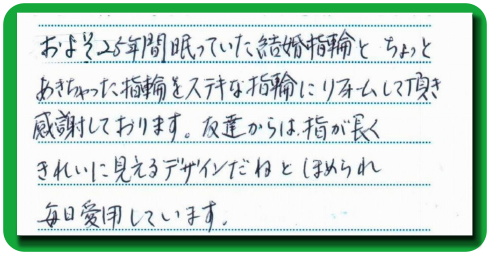 およそ25年間眠っていた結婚指輪と ちょっと
あきちゃった指輪をステキな指輪にリフォームして頂き
感謝しております。友達からは、指が長く
きれいに見えるデザインだねと ほめられ
毎日愛用しています。